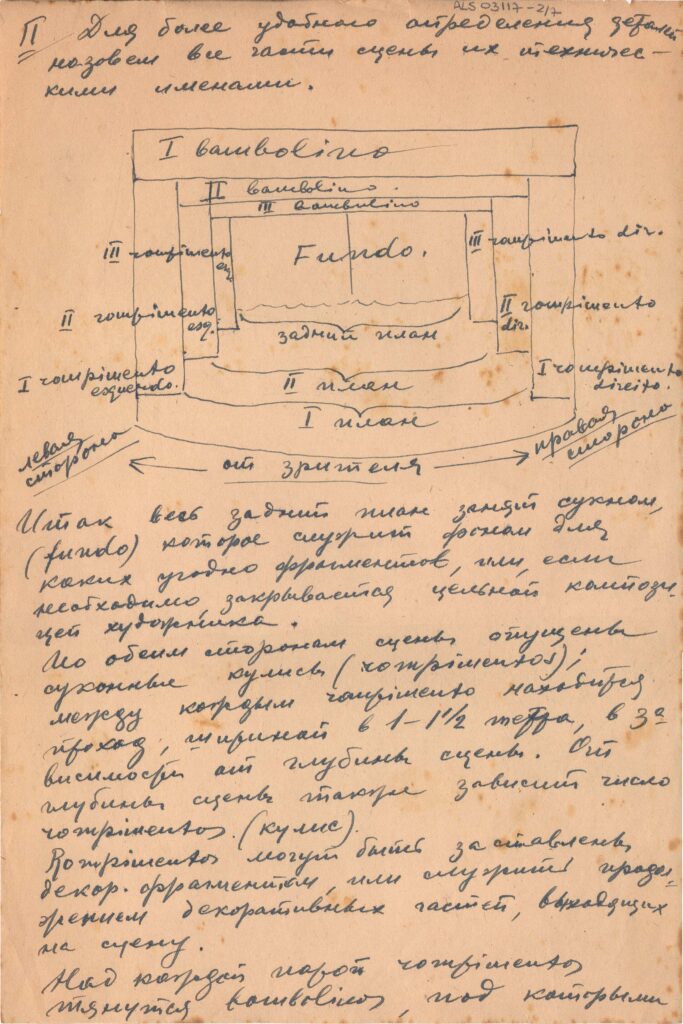 ALS 03117-2/7
II Для более удобного определения деталей
назовем все части сцены их техничес-
кими именами.
I bambolino
II bambolino.
III bambolino
III rompimento
esq.
Fundo.
III rompimento dir.
II rompimento
esq.
II rompimento
dir.
задний план
I rompimento
esquerdo.
II план
I rompimento
direito.
I план
левая
сторона
правая
сторона
от зрителя
Итак весь задний план занят сукном,
(fundo) которое служит фоном для
каких угодно фрагментов, или, если
необходимо, закрывается цельной компози-
цией художника.
По обеим сторонам сцены опущены
суконные кулисы (rompimentos);
между каждым rompimento находится
проход, шириной в 1–1½ метра, в за-
висимости от глубины сцены. От
глубины сцены также зависит число
rompimentos. (кулис).
Rompimentos могут быть заставлены
декор. фрагментом, или служить продол-
жением декоративных частей, выходящих
на сцену.
Над каждой парой rompimentos
тянутся bambolinos, под которыми